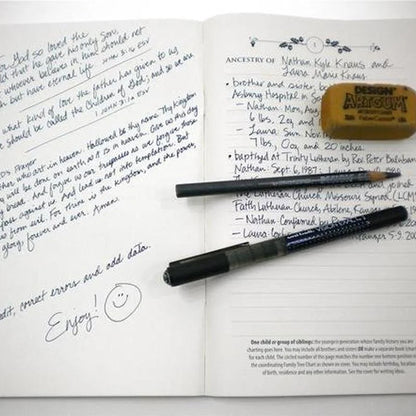 For God so loved the
world that he gave his only Son
whoever believes in him should not
but have eternal life
John 3:16 ESV
what kind of love the Father has given to us
should be called the children of God; and so we are
Prayer
who art in heaven. Hallowed be thy name. Thy Kingdom
will be done on earth as it is in heaven. Give us this day
bread. And forgive us our trespasses as we forgive those
against us. And lead us not into temptation. But
from evil. For thine is the kingdom, and the power,
glory, forever and ever. Amen.
edit, correct errors and add data.
Enjoy!
1
ANCESTRY OF Nathan Kyle Kraus and
Laura Marie Kraus
• brother and sister
Asbury Hospital
- Nathan: Mon, Aug
6 lbs, 7 oz and
- Laura: Sun, Nov
7 lbs, 0 oz, and 20 inches.
• baptized at Trinity Lutheran by Rev. Peter
Nathan: Sept. 6, 1987
The Lutheran Church Missouri Synod (LCMS)
Faith Lutheran Church, Abilene, Kansas
- Nathan: Confirmed
- Laura:
DESIGN
ARTGUM
Faber Castell
One child or group of siblings: the youngest generation whose family history you are
charting goes here. You may include all brothers and sisters OR make a separate book/chart
for each child. The circled number of this page matches the number one
the coordinating Family Tree Chart as shown on cover. You may include birthday, location
of birth, residence and any other information. See the cover for writing ideas.